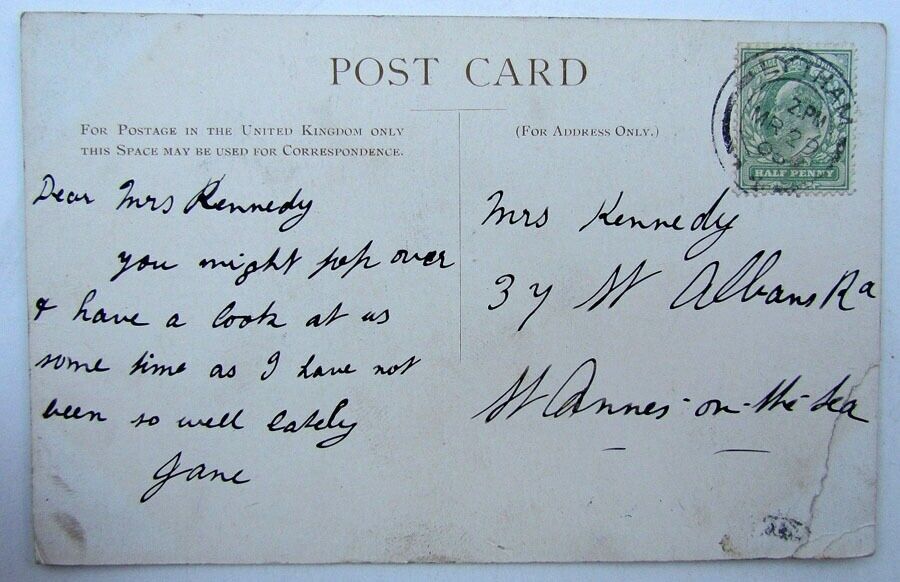 POST CARD
FOR POSTAGE IN THE UNITED KINGDOM ONLY
THIS SPACE MAY BE USED FOR CORRESPONDENCE.
(FOR ADDRESS ONLY.)
LYTHAM
2. PM
MR 2
HALF PENNY
Dear Mrs Kennedy
you might pop over
& have a look at us
some time as I have not
been so well lately
Jane
Mrs Kennedy
37 St Albans Rd
St Annes-on-the-Sea